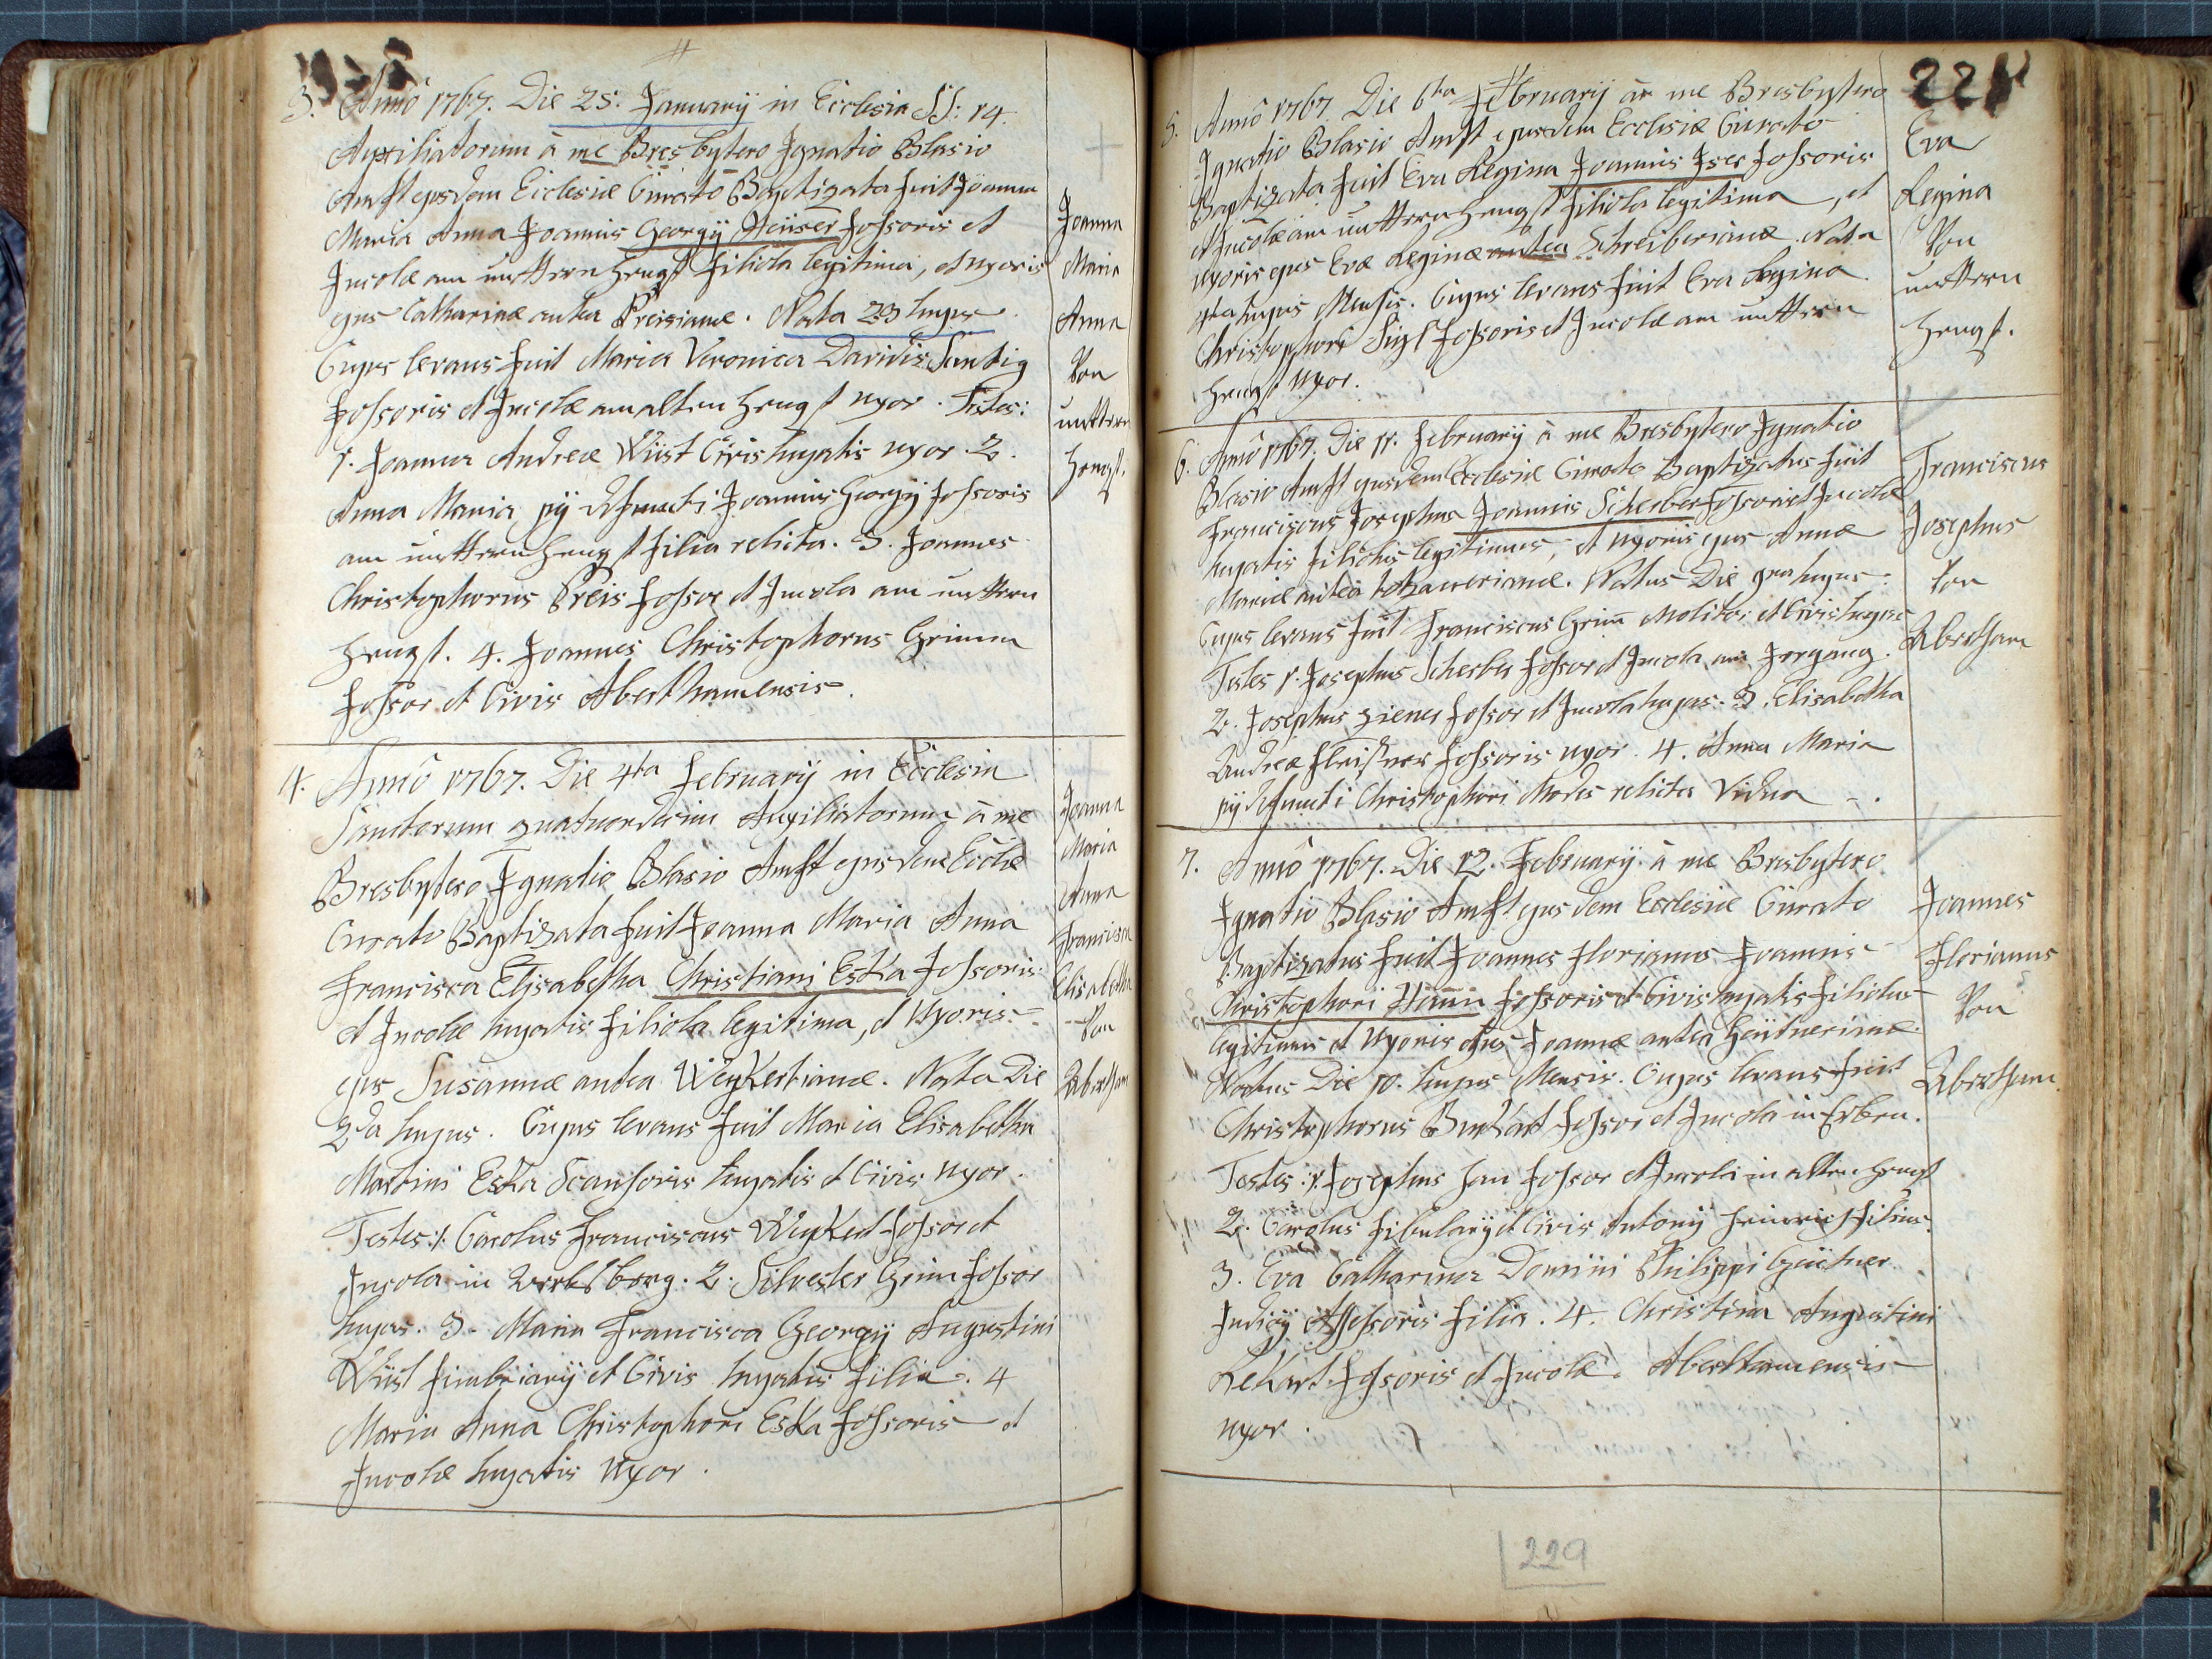 3. Annô 1767. Die 25. Januarÿ in Ecclesia SS: 14
Auxiliatorum à me Bresbytero Ignatio Blasio
Anft ejusdem Ecclesiæ Curato Baptizata fuit Joanna
Maria Anna Joannis Georgÿ Heüser fossoris et
Incolæ am unttern Hengst filiola legitima, et uxoris
ejus Catharinæ antea Preisianæ. Nata 23 hujus
Cujus levans fuit Maria Veronica Davidis
fossoris et Incolæ am alten Hengst uxor. Testes:
1. Joanna Andreæ Wüst Civis hujatis uxor 2.
Anna Maria pÿ defuncti Joannis Georgÿ fossoris
am unttern Hengst filia relicta. 3. Joannes
Christophorus Preis fossor et Incola am unttern
Hengst. 4. Joannes Christophorus Grimm
fossor et Civis Aberthamensis.
Joanna
Maria
Anna
Von
unttern
Hengst.
4. Annô 1767. Die 4ta February in Ecclesia
Sanctorum quatuordecim Auxiliatorum à me
Bresbytero Ignatio Blasio Anft ejusdem Ecclæ
Curato Baptizata fuit Joanna Maria Anna
Francisca Elisabetha Christiani Eska fossoris
et Incolæ hujatis filiola legitima, et Uxoris
ejus Susannæ antea Weykertianæ. Nata Die
2da hujus. Cujus levans fuit Maria Elisabetha
Martini Eska Scansoris hujatis et Civis uxor.
Testes: 1. Carolus Franciscus Weykert fossor et
Incola in 2. Silvester Grim fossor
hujas. 3. Maria Francisca Georgÿ Augustini
Wüst fimbriarÿ et Civis hujatis filia. 4
Maria Anna Christophori Eska fossoris et
Incolæ hujatis Uxor.
Joanna
Maria
Anna
Francisca
Elisabetha
Von
Abertham
221
5. Annô 1767 Die 6ta February à me Bresbytero
Ignatio Blasio Anft ejusdem Ecclesiæ Curato
Baptizata fuit Eva Regina Joannis Iser fossoris
et Incolæ am unttern Hengst filiola legitima, et
uxoris ejus Evæ Reginæ antea Schreiberianæ. Nata
4ta hujus Mensis. Cujus levans fuit Eva Regina
Christophori fossoris et Incolæ am unttern
Hengst uxor.
Eva
Regina
Von
unttern
Hengst.
6. Annô 1767. Die 11. February à me Bresbytero Ignatio
Blasio Anft ejusdem Ecclesiæ Curato Baptizatus fuit
Franciscus Josephus Joannis Scherber fossoris et Incolæ
hujatis filiolus legitimus, et uxoris ejus Annæ
Mariæ antea. Natus Die 9na hujus:
Cujus levans fuit Franciscus Grim̄ Molitor et Civis hujas
Testes 1. Josephus Scherber fossor et Incola am Irrgang.
2. Josephus Ziener fossor et Incola hujas. 3. Elisabetha
Andreæ Fleissner fossoris uxor. 4. Anna Maria
pÿ defuncti Christophori Modes relicta Vidua
Franciscus
Josephus
Von
Abertham
7. Annô 1767. Die 12. February à me Bresbytero
Ignatio Blasio Anft ejusdem Ecclesiæ Curato
Baptizatus fuit Joannes Florianus Joannis
Christophori Hann fossoris et Civis hujatis filiolus
legitimus et Uxoris ejus Joannæ antea
Natus Die 10. hujus Mensis. Cujus levans fuit
Christophorus fossor et Incola in
Testes: 1. Josephus Han fossor et Incola in alten Hengst
2. Carolus fibularÿ et Civis Antonÿ Heinrich filius
3. Eva Catharina Domini Philippi
Judicÿ Assessoris filia. 4. Christina Augustini
Rekart fossoris et Incolæ Aberthamensis
uxor.
Joannes
Florianus
Von
Abertham.
229